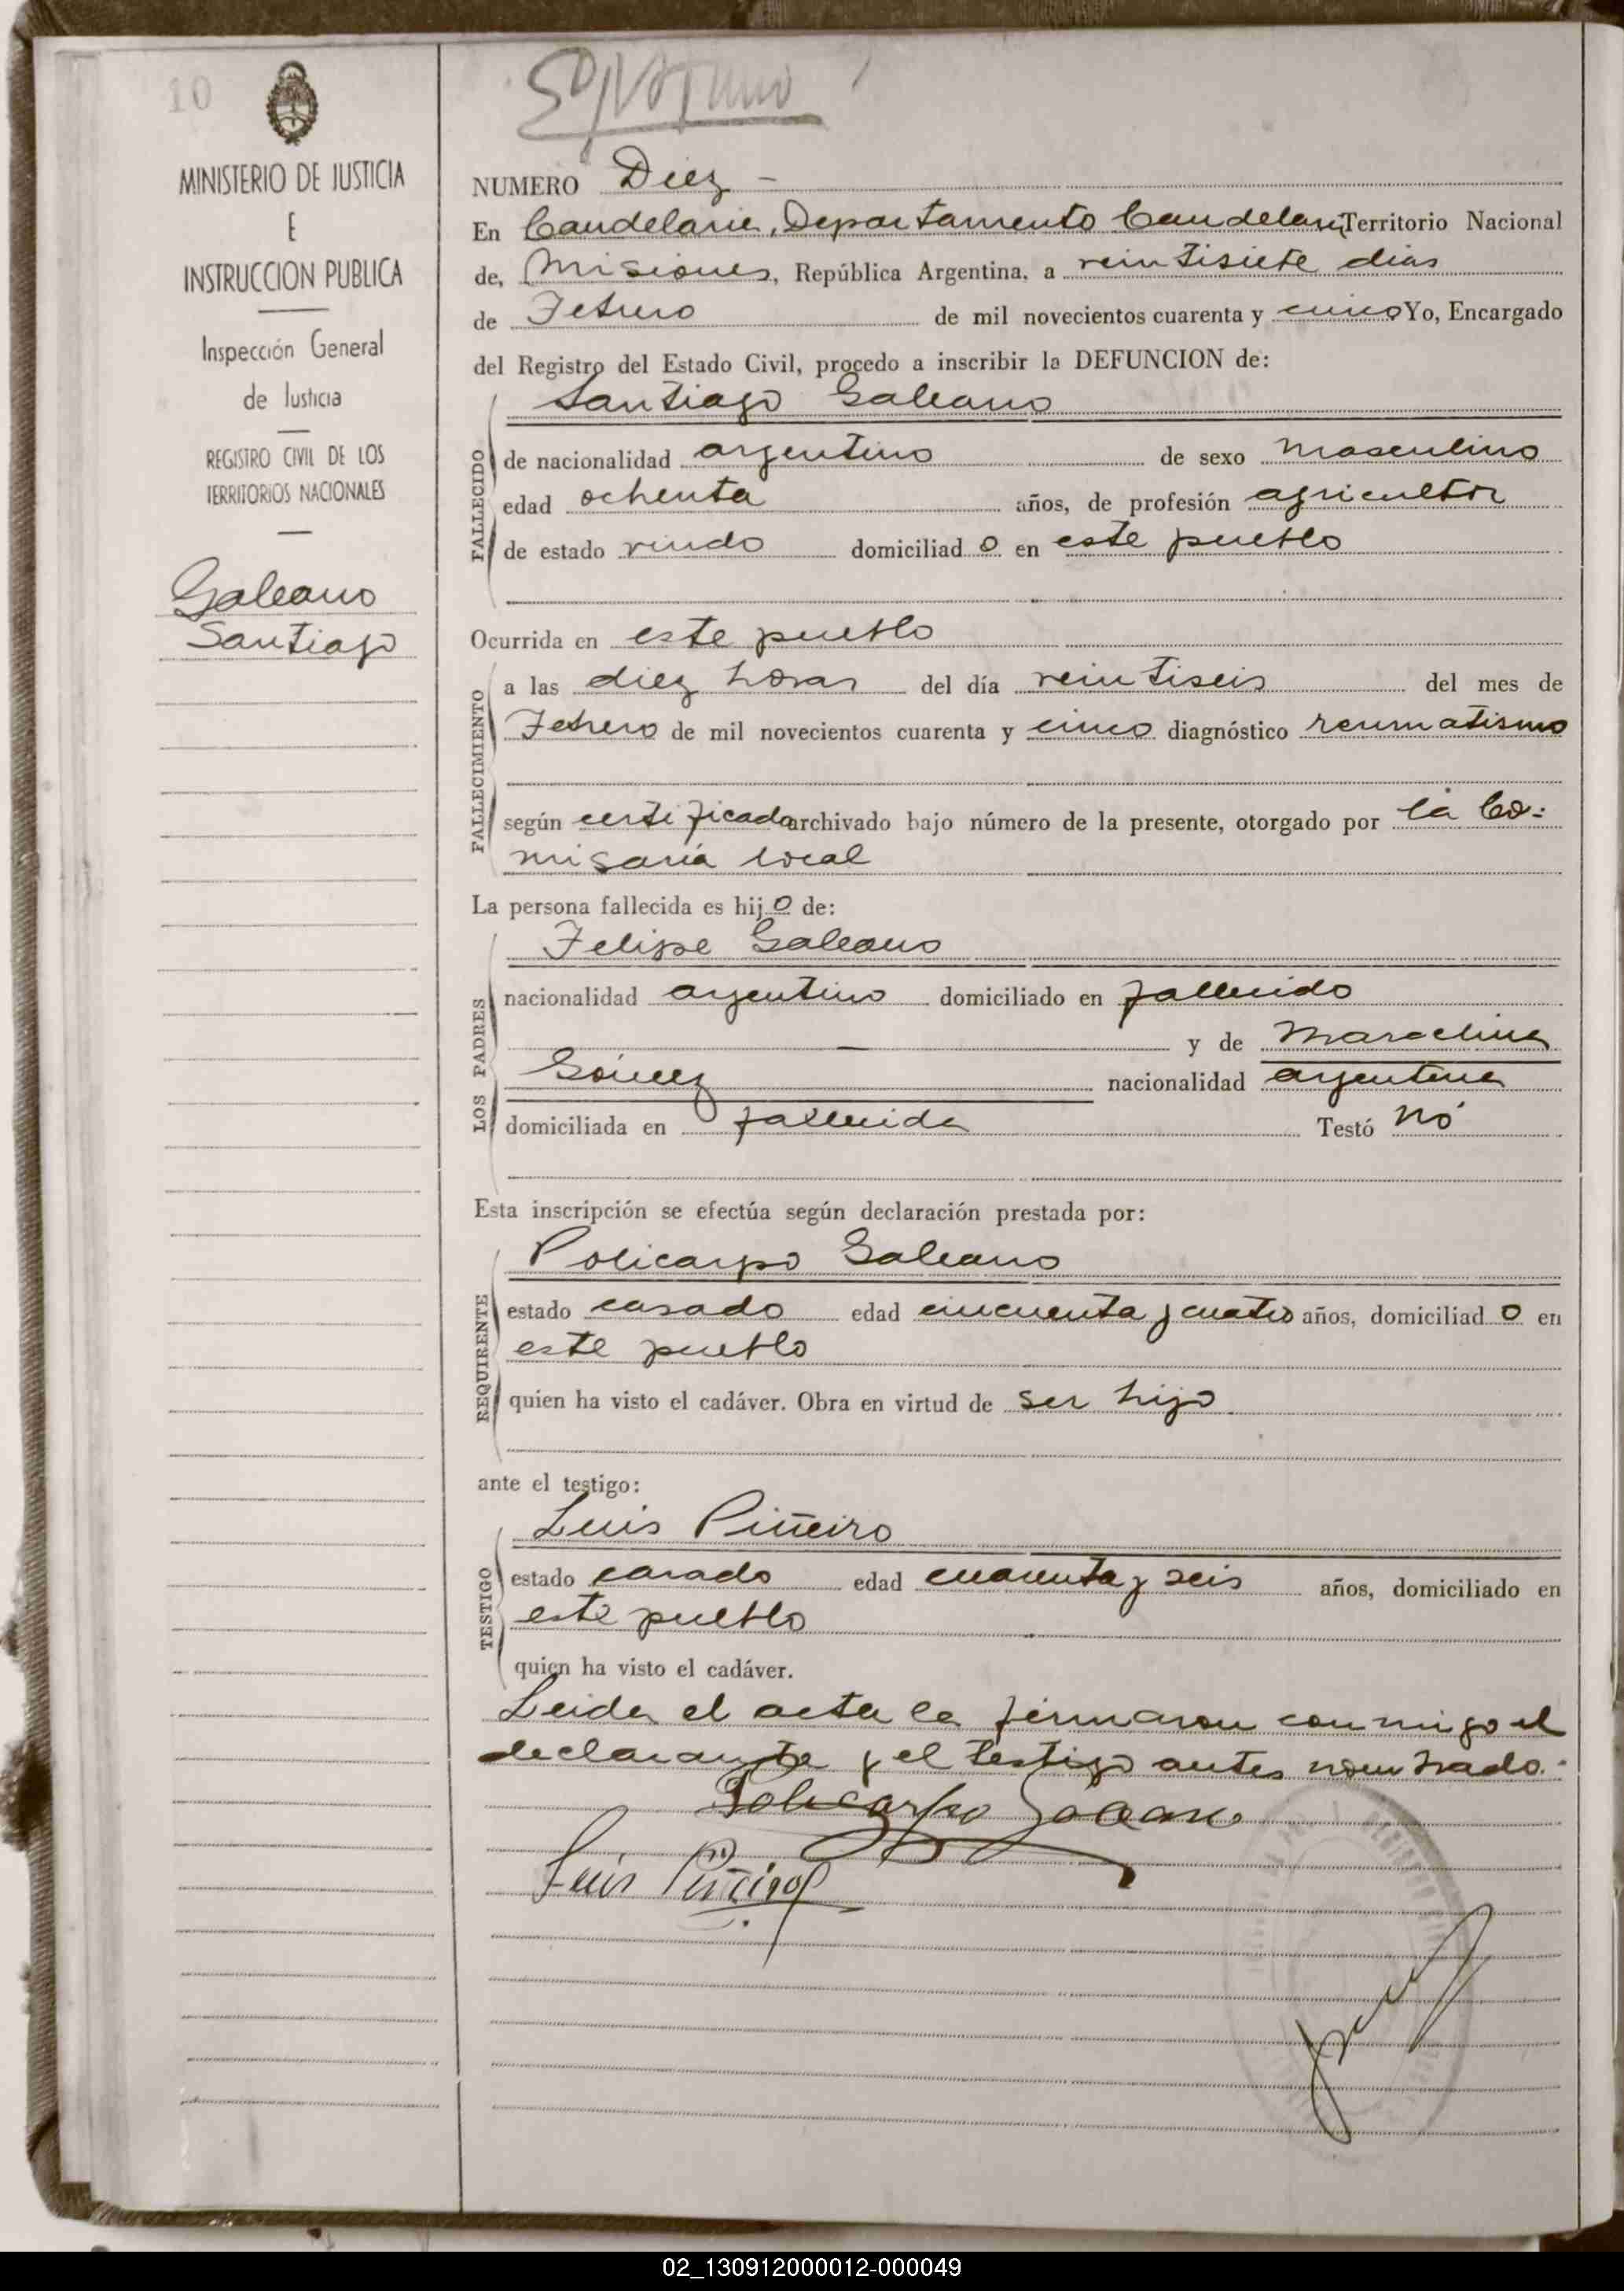 10
MINISTERIO DE JUSTICIA
E
INSTRUCCION PUBLICA
Inspección General
de Justicia
REGISTRO CIVIL DE LOS
TERRITORIOS NACIONALES
Galeano
Santiago
NUMERO Diez -
En Candelaria, Departamento Candelaria, Territorio Nacional
de, Misiones, República Argentina, a veintisiete dias
de Febrero de mil novecientos cuarenta y cinco Yo, Encargado
del Registro del Estado Civil, procedo a inscribir la DEFUNCION de:
Santiago Galeano
FALLECIDO
de nacionalidad argentino de sexo masculino
edad ochenta años, de profesión agricultor
de estado viudo domiciliado en este pueblo
Ocurrida en este pueblo
FALLECIMIENTO
a las diez horas del día veintiseis del mes de
Febrero de mil novecientos cuarenta y cinco diagnóstico reumatismo
según certificado archivado bajo número de la presente, otorgado por la Co-
misaría local
La persona fallecida es hijo de:
LOS PADRES
Felipe Galeano
nacionalidad argentino domiciliado en fallecido
— y de Marcelina
Gómez nacionalidad argentina
domiciliada en fallecida Testó nó
Esta inscripción se efectúa según declaración prestada por:
REQUIRENTE
Policarpo Galeano
estado casado edad cincuenta y cuatro años, domiciliado en
este pueblo
quien ha visto el cadáver. Obra en virtud de ser hijo
ante el testigo:
TESTIGO
Luis Piñeiro
estado casado edad cuarenta y seis años, domiciliado en
este pueblo
quien ha visto el cadáver.
Leida el acta la firmaron conmigo el
declarante y el testigo antes nombrado.-
Policarpo Galeano
Luis Piñeiro
02_130912000012-000049